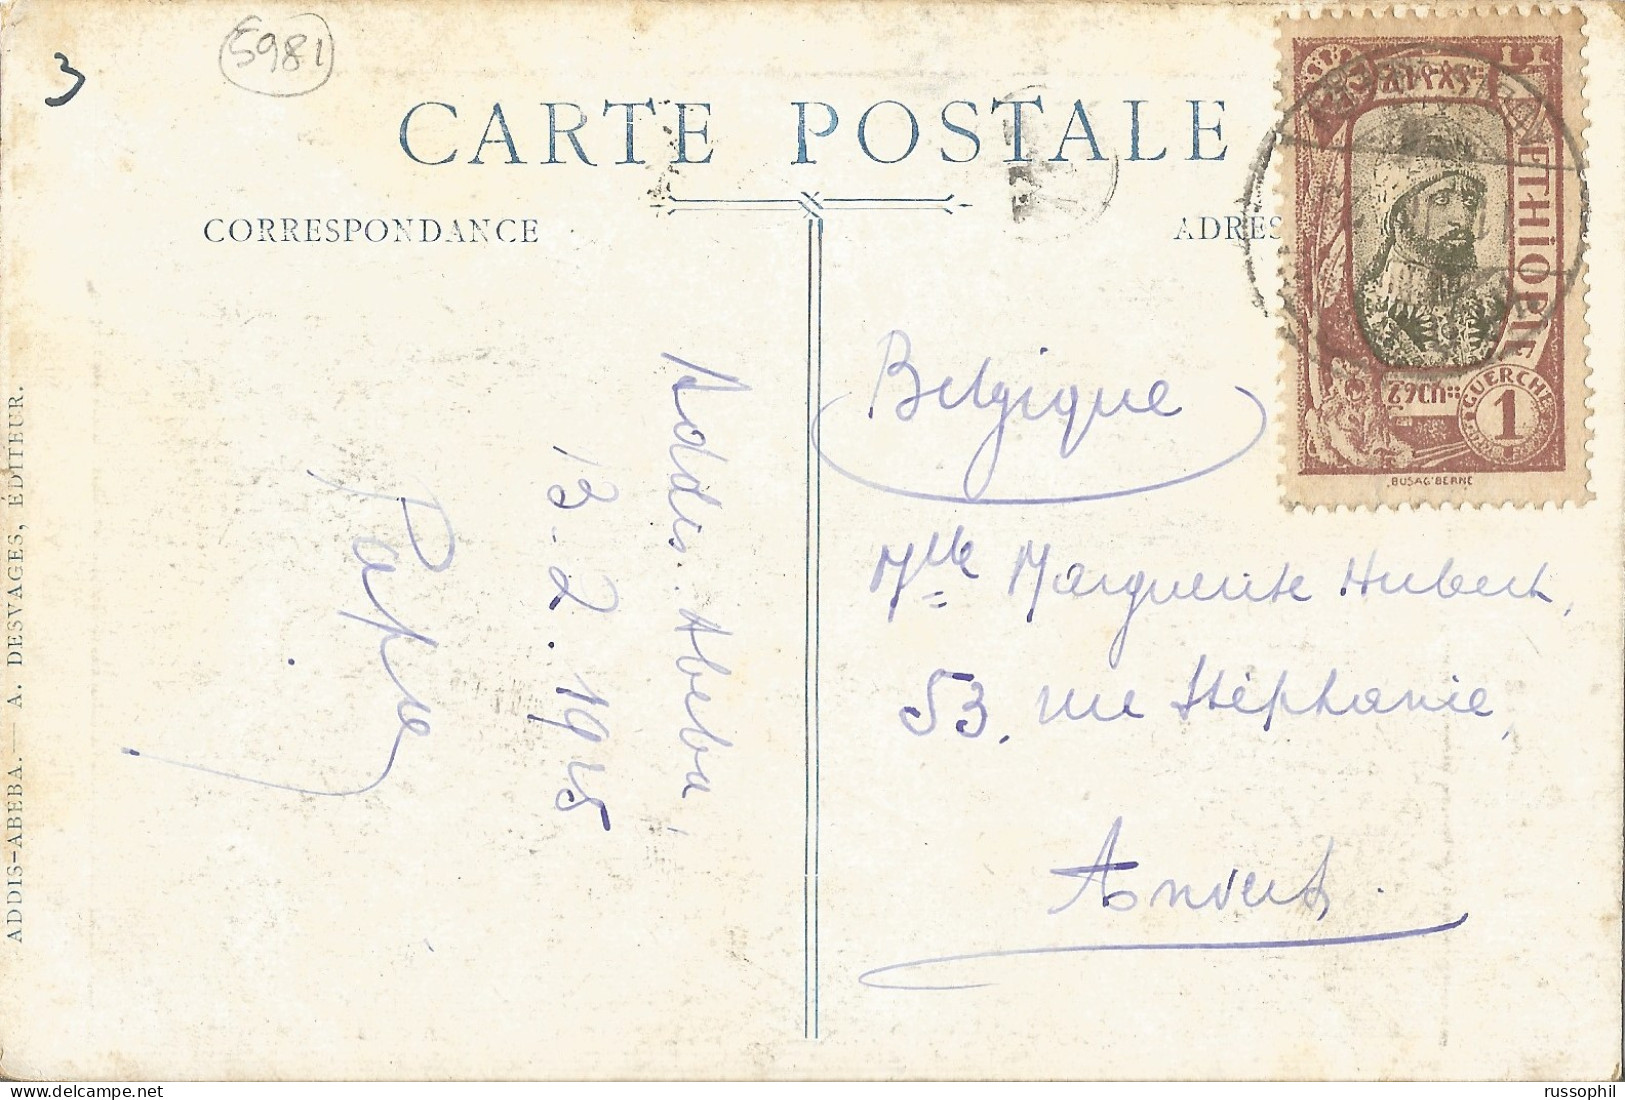 3
5981
CARTE POSTALE
CORRESPONDANCE
ADRES
ETHIOPIE
GUERCHE
1
BUSAG BERNE
Addis-Abeba
13-2.1925
Papa
Belgique
Mlle Marguerite Hubert,
53, rue Stéphanie,
Anvers.
ADDIS-ABEBA. — A. DESVAGES, ÉDITEUR.
russophil